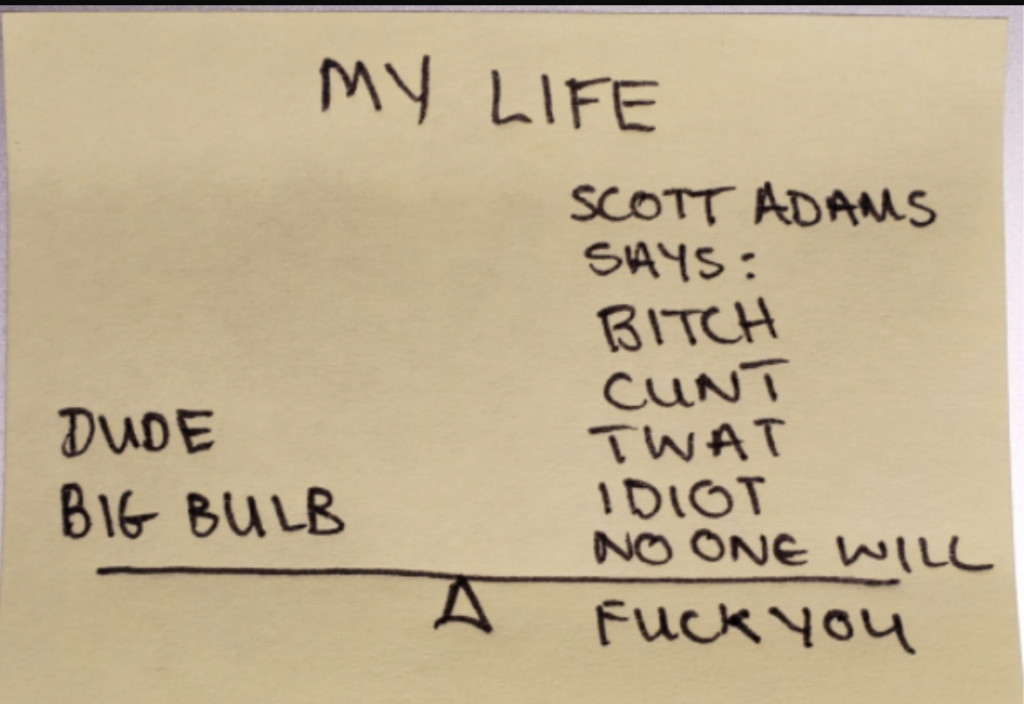 MY LIFE
SCOTT ADAMS
SAYS:
BITCH
CUNT
TWAT
IDIOT
NO ONE WILL
FUCK YOU
DUDE
BIG BULB